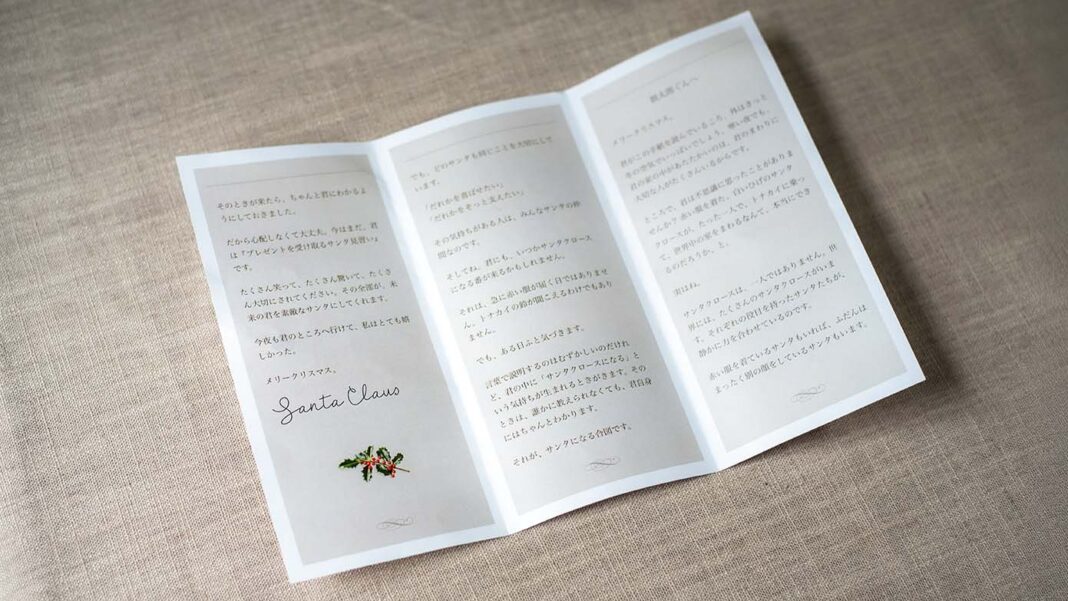 太郎くんへ
メリークリスマス。
君がこの手紙を読んでいるころ、外はきっと
冬の空気でいっぱいでしょう。寒い夜でも、
君の家の中があたたかいのは、君のまわりに
大切な人がたくさんいるからです。
ところで、君は不思議に思ったことがありま
せんか？赤い服を着た、白いひげのサンタ
クロースが、たった一人で、トナカイに乗っ
て、世界中の家をまわるなんて、本当にでき
るのだろうか、と。
実はね、
サンタクロースは、一人ではありません。世
界には、たくさんのサンタクロースがいま
す。それぞれの役目を持ったサンタたちが、
静かに力を合わせているのです。
赤い服を着ているサンタもいれば、ふだんは
まったく別の顔をしているサンタもいます。
でも、どのサンタも同じことを大切にして
います。
「だれかを喜ばせたい」
「だれかをそっと支えたい」
その気持ちがある人は、みんなサンタの仲
間なのです。
そしてね、君にも、いつかサンタクロース
になる番が来るかもしれません。
それは、急に赤い服が届く日ではありませ
ん。トナカイの鈴が聞こえるわけでもあり
ません。
でも、ある日ふと気づきます。
言葉で説明するのはむずかしいのだけれ
ど、君の中に「サンタクロースになる」と
いう気持ちが生まれるときがきます。その
ときは、誰かに教えられなくても、君自身
にはちゃんとわかります。
それが、サンタになる合図です。
そのときが来たら、ちゃんと君にわかるよ
うにしておきました。
だから心配しなくて大丈夫。今はまだ、君
は『プレゼントを受け取るサンタ見習い』
です。
たくさん笑って、たくさん驚いて、たくさ
ん大切にされてください。その全部が、未
来の君を素敵なサンタにしてくれます。
今夜も君のところへ行けて、私はとても嬉
しかった。
メリークリスマス。
Santa Claus